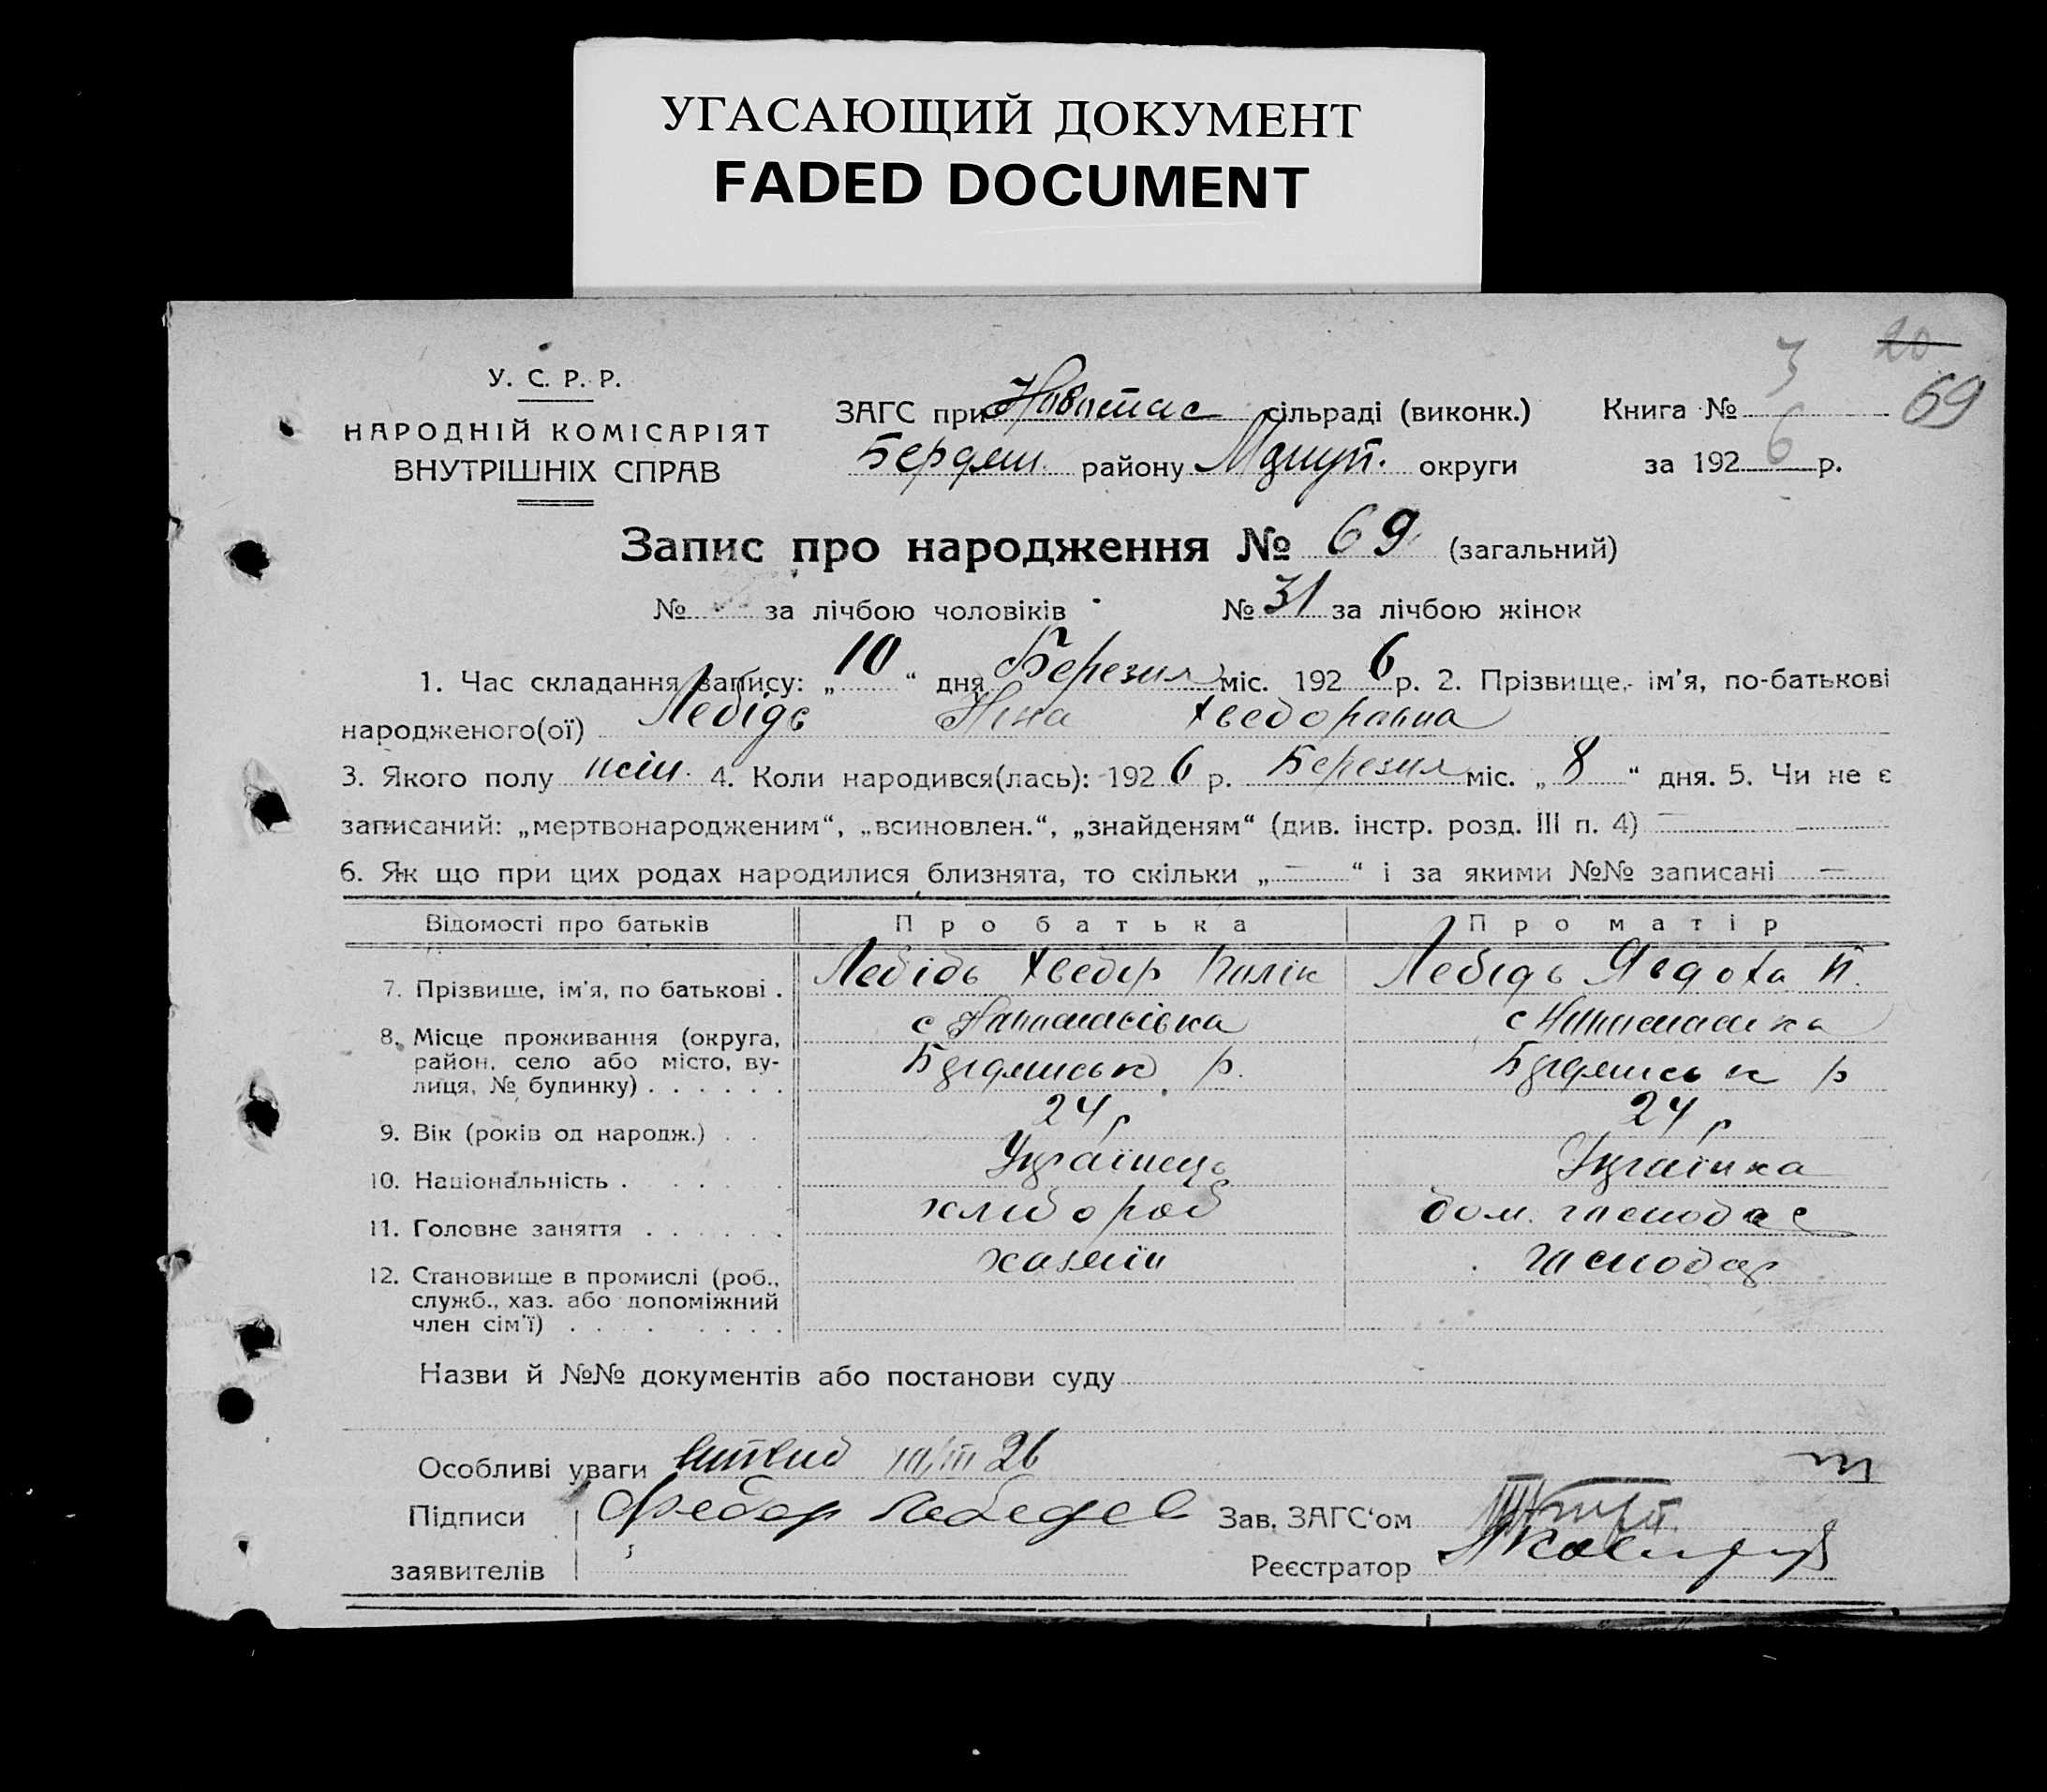 УГАСАЮЩИЙ ДОКУМЕНТ
FADED DOCUMENT
20
69
У. С. Р. Р.
НАРОДНІЙ КОМІСАРІЯТ
ВНУТРІШНІХ СПРАВ
ЗАГС при Новотас сільраді (виконк.)
Бердян. району Маріуп. округи
Книга № 3
за 192 6 р.
Запис про народження № 69 (загальний)
№ за лічбою чоловіків № 31 за лічбою жінок
1. Час складання запису: „ 10 “ дня Березня міс. 192 6 р. 2. Прізвище, ім'я, по-батькові
народженого(ої) Лебідь Ніна Хведоравна
3. Якого полу жін. 4. Коли народився(лась): 192 6 р. Березня міс. „ 8 “ дня. 5. Чи не є
записаний: „мертвонародженим“, „всиновлен.“, „знайденям“ (див. інстр. розд. III п. 4) —
6. Як що при цих родах народилися близнята, то скільки „ — “ і за якими №№ записані —
Відомості про батьків Про батька Про матір
7. Прізвище, ім'я, по батькові . Лебідь Хведір Лебідь Явдоха
8. Місце проживання (округа, район, село або місто, вулиця, № будинку) . . . . . . с с
Бердянськ р. Бердянськ р
9. Вік (років од народж.) . . 24 р 24 р
10. Національність . . . . . Українець Українка
11. Головне заняття . . . . . . хлибороб дом. господар
12. Становище в промислі (роб., служб., хаз. або допоміжний член сім'ї) . . . . . . . . хазяїн господар
Назви й №№ документів або постанови суду
Особливі уваги 26
Підписи заявителів Федор Лебедев
Зав. ЗАГС'ом
Реєстратор